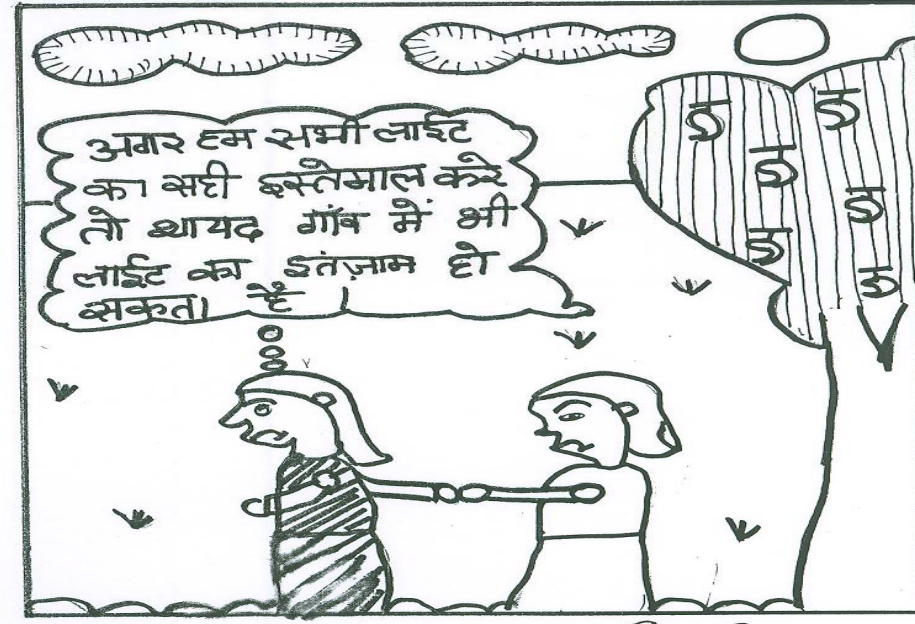 अगर हम सभी लाईट
का सही इस्तेमाल करे
तो शायद गाँव में भी
लाईट का इतंज़ाम हो
सकता है।